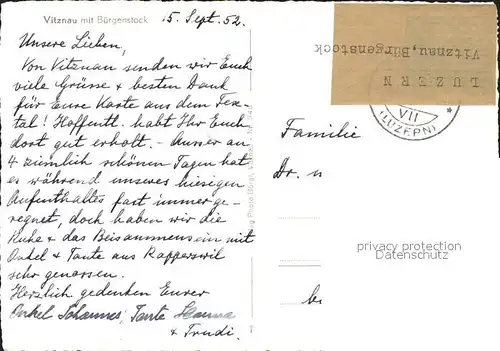 Vitznau mit Bürgenstock
15. Sept. 52.
Unsere Lieben,
Von Vitznau senden wir Euch
viele Grüsse & besten Dank
für Eure Karte aus dem Tes-
tal! Hoffentl. habt Ihr Euch
dort gut erholt. - Ausser an
4 ziemlich schönen Tagen hat
es während unseres hiesigen
Aufenthaltes fast immer ge-
regnet, doch haben wir die
Ruhe & das Beisammensein mit
Onkel & Tante aus Rapperswil
sehr genossen.
Herzlich gedenken Eurer
Onkel Johannes, Tante Hanna
& Trudi.
LUZERN
Vitznau, Bürgenstock
VII
(LUZERN)
Familie
Dr.
privacy protection
Datenschutz